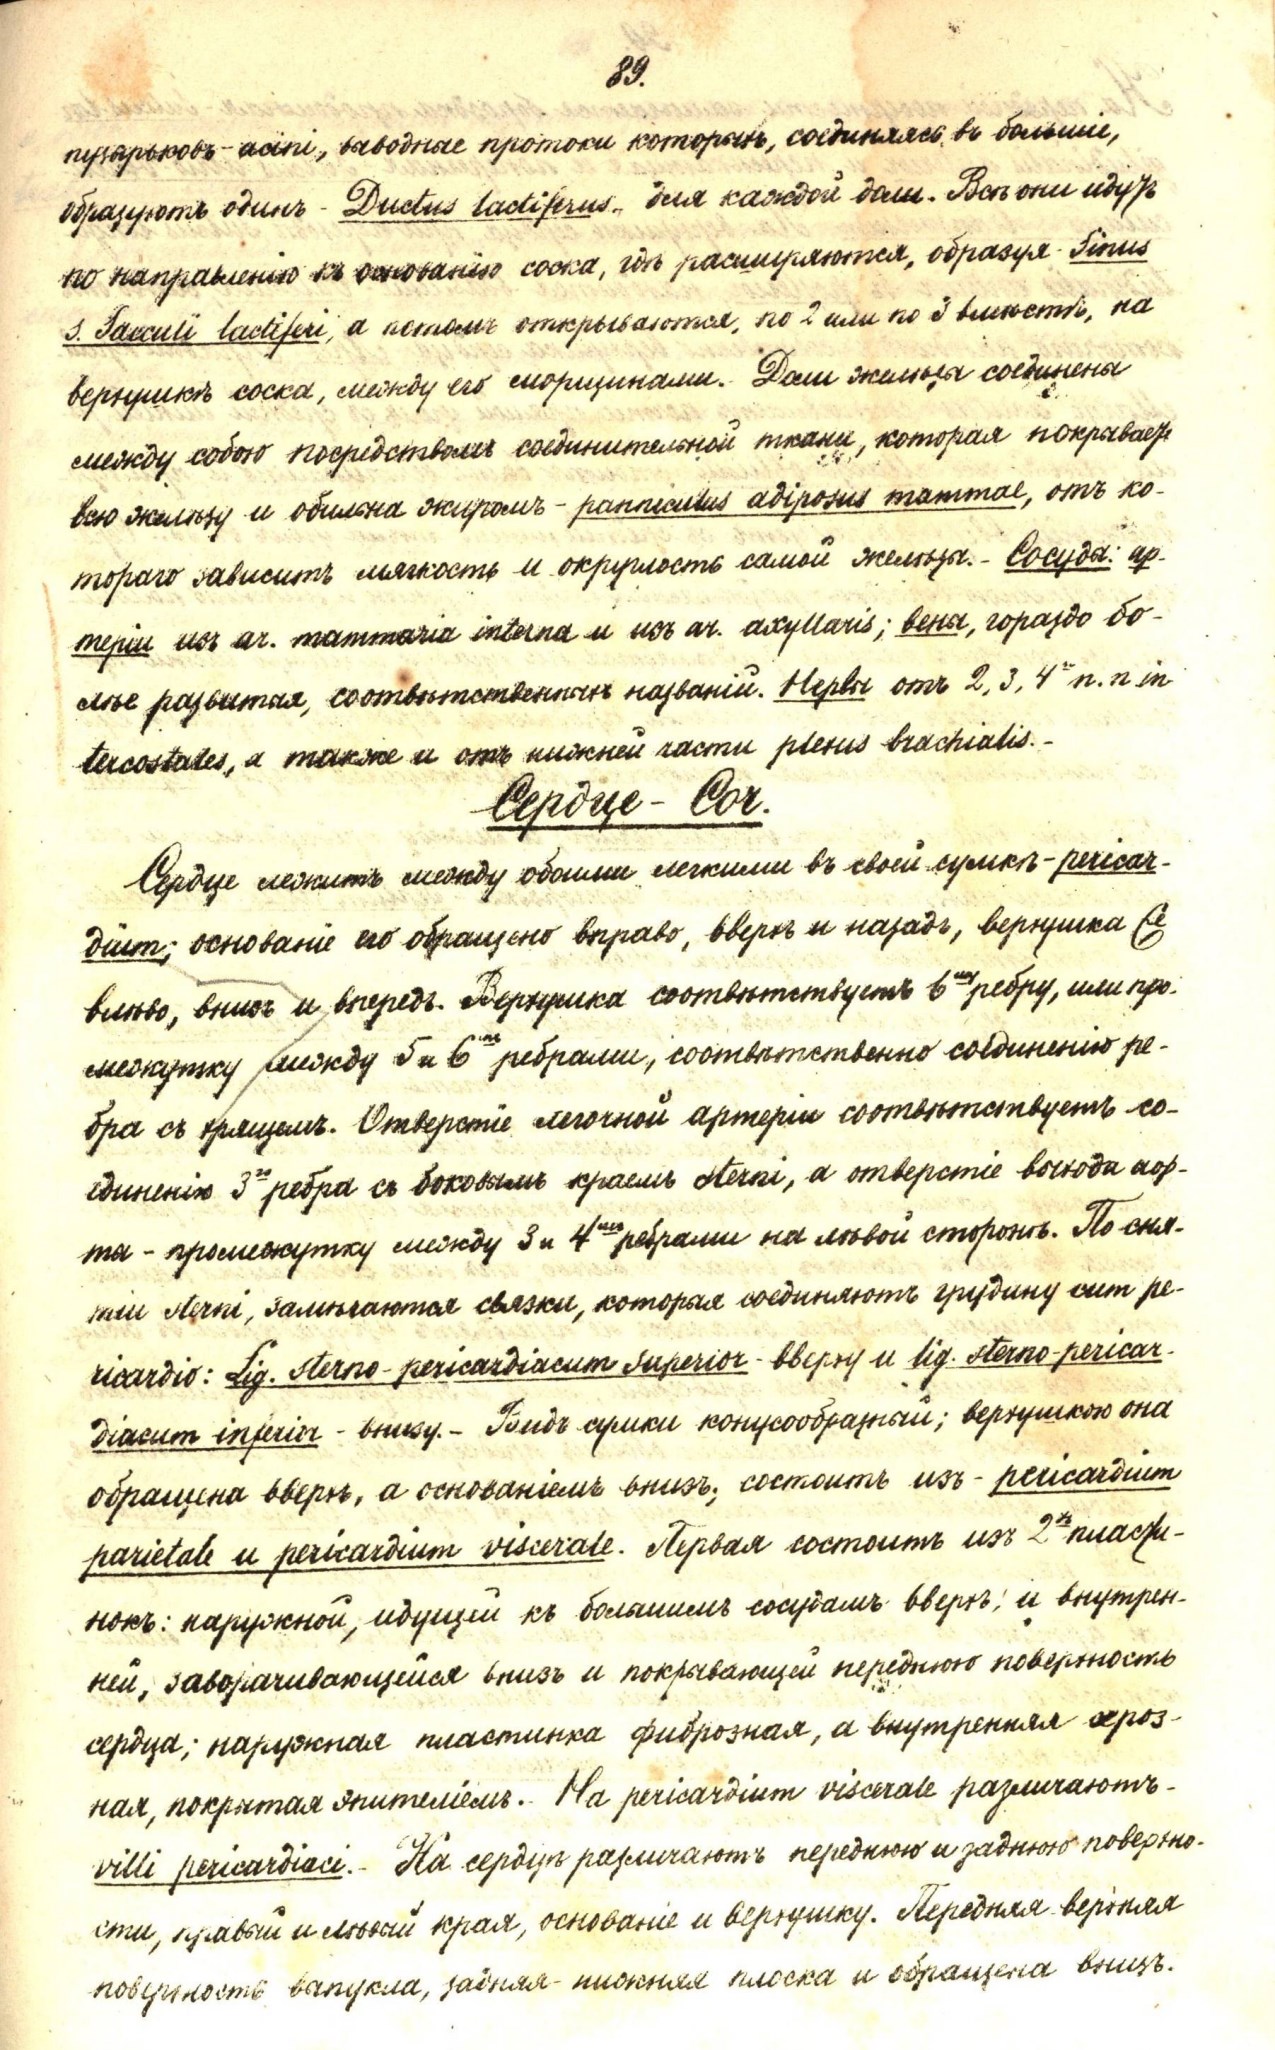 89.
пузырьковъ - acini, выводные протоки которыхъ, соединяясь въ большіе,
образуютъ одинъ - Ductus lactiferus - для каждой доли. Всѣ они идутъ
по направленію къ основанію соска, гдѣ расширяются, образуя - Sinus
s. Sacculi lactiferi, а потомъ открываются, по 2 или по 3 вмѣстѣ, на
верхушкѣ соска, между его морщинами. Доли железы соединены
между собою посредствомъ соединительной ткани, которая покрываетъ
всю железу и обильна жиромъ - panniculus adiposus mammae, отъ ко-
тораго зависитъ мягкость и округлость самой железы. - Сосуды: ар-
теріи изъ ar. mammaria interna и изъ ar. axyllaris; вены, гораздо бо-
лѣе развитыя, соотвѣтственныхъ названій. Нервы отъ 2, 3, 4 n. n. in
tercostales, а также и отъ нижней части plexus brachialis. -
Сердце - Cor.
Сердце лежитъ между обоими легкими въ своей сумкѣ - pericar-
dium; основаніе его обращено вправо, вверхъ и назадъ, верхушка
влѣво, внизъ и впередъ. Верхушка соотвѣтствуетъ 6му ребру, или про-
межутку между 5 и 6мъ ребрами, соотвѣтственно соединенію ре-
бра съ хрящемъ. Отверстіе легочной артеріи соотвѣтствуетъ со-
единенію 3го ребра съ боковымъ краемъ sterni, а отверстіе выхода аор-
ты - промежутку между 3 и 4мъ ребрами на лѣвой сторонѣ. По сня-
тіи sterni, замѣчаются связки, которыя соединяютъ грудину cum pe-
ricardio: Lig. sterno-pericardiacum superior - вверху и lig. sterno-pericar-
diacum inferior - внизу. - Видъ сумки конусообразный; верхушкою она
обращена вверхъ, а основаніемъ внизъ; состоитъ изъ - pericardium
parietale и pericardium viscerale. Первая состоитъ изъ 2хъ пласти-
нокъ: наружной, идущей къ большимъ сосудамъ вверхъ; и внутрен-
ней, заворачивающейся внизъ и покрывающей переднюю поверхность
сердца; наружная пластинка фиброзная, а внутренняя сероз-
ная, покрытая эпителіемъ. - На pericardium viscerale различаютъ -
villi pericardiaci. - На сердцѣ различаютъ переднюю и заднюю поверхно-
сти, правый и лѣвый края, основаніе и верхушку. Передняя - верхняя
поверхность выпукла, задняя - нижняя плоска и обращена внизъ.